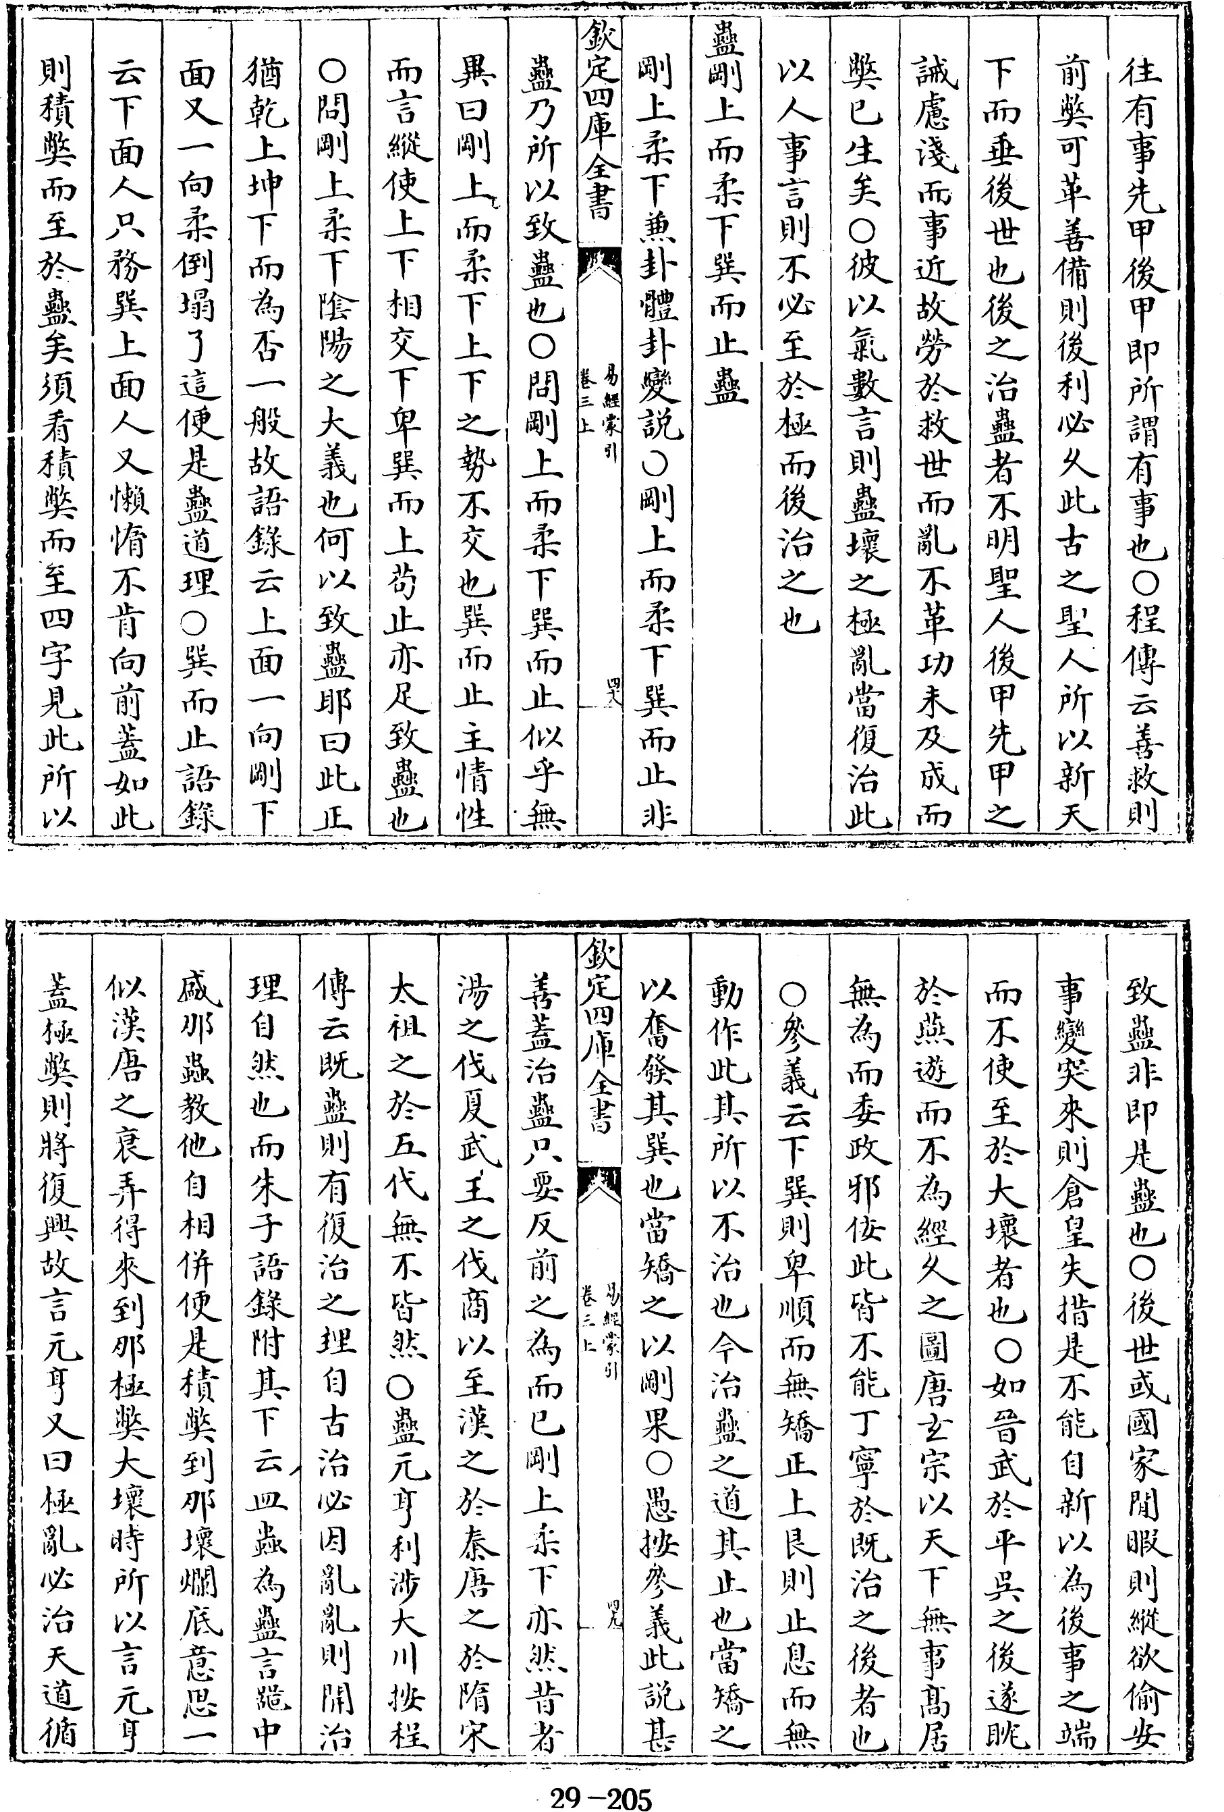 往有事先甲後甲即所謂有事也○程傳云善救則
前弊可革善備則後利必久此古之聖人所以新天
下而垂後世也後之治蠱者不明聖人後甲先甲之
誡慮淺而事近故勞於救世而亂不革功未及成而
弊已生矣○彼以氣數言則蠱壞之極亂當復治此
以人事言則不必至於極而後治之也
蠱剛上而柔下巽而止蠱
剛上柔下兼卦體卦變説○剛上而柔下巽而止非
欽定四庫全書
易經蒙引
卷三上
四八
蠱乃所以致蠱也○問剛上而柔下巽而止似乎無
異曰剛上而柔下上下之勢不交也巽而止主情性
而言縱使上下相交下卑巽而上苟止亦足致蠱也
○問剛上柔下陰陽之大義也何以致蠱耶曰此正
猶乾上坤下而為否一般故語錄云上面一向剛下
面又一向柔倒塌了這便是蠱道理○巽而止語錄
云下面人只務巽上面人又懶惰不肯向前蓋如此
則積弊而至於蠱矣須看積弊而至四字見此所以
致蠱非即是蠱也○後世或國家閒暇則縱欲偷安
事變突來則倉皇失措是不能自新以為後事之端
而不使至於大壞者也○如晉武於平吳之後遂眈
於燕遊而不為經久之圖唐玄宗以天下無事髙居
無為而委政邪佞此皆不能丁寧於既治之後者也
○參義云下巽則卑順而無矯正上艮則止息而無
動作此其所以不治也今治蠱之道其止也當矯之
以奮發其巽也當矯之以剛果○愚按參義此説甚
欽定四庫全書
易經蒙引
卷三上
四九
善蓋治蠱只要反前之為而已剛上柔下亦然昔者
湯之伐夏武王之伐商以至漢之於秦唐之於隋宋
太祖之於五代無不皆然○蠱元亨利涉大川按程
傳云既蠱則有復治之理自古治必因亂亂則開治
理自然也而朱子語錄附其下云皿蟲為蠱言器中
盛那蟲教他自相併便是積弊到那壞爛底意思一
似漢唐之衰弄得來到那極弊大壞時所以言元亨
蓋極弊則將復興故言元亨又曰極亂必治天道循
29-205